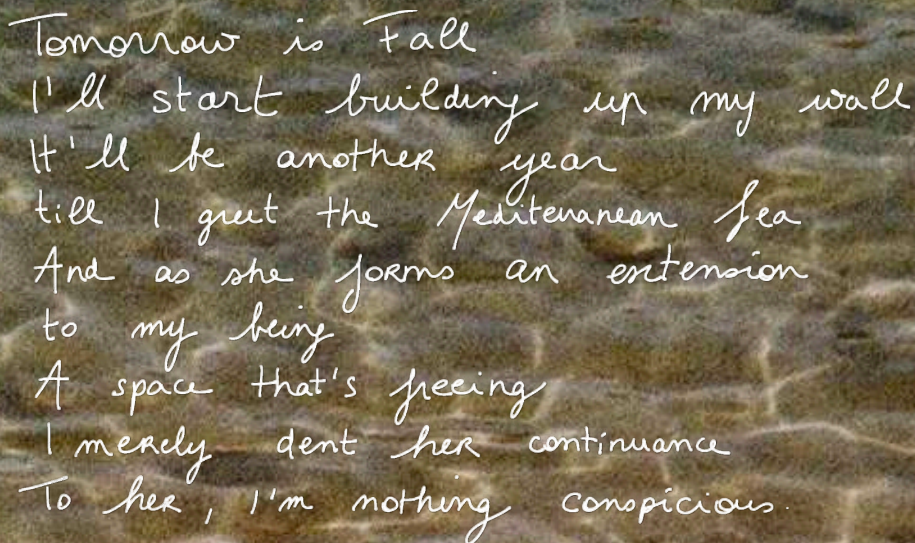 Tomorrow is Fall
I'll start building up my wall
It'll be another year
till I greet the Mediteranean Sea
And as she forms an extension
to my being
A space that's freeing
I merely dent her continuance
To her, I'm nothing conspicious.